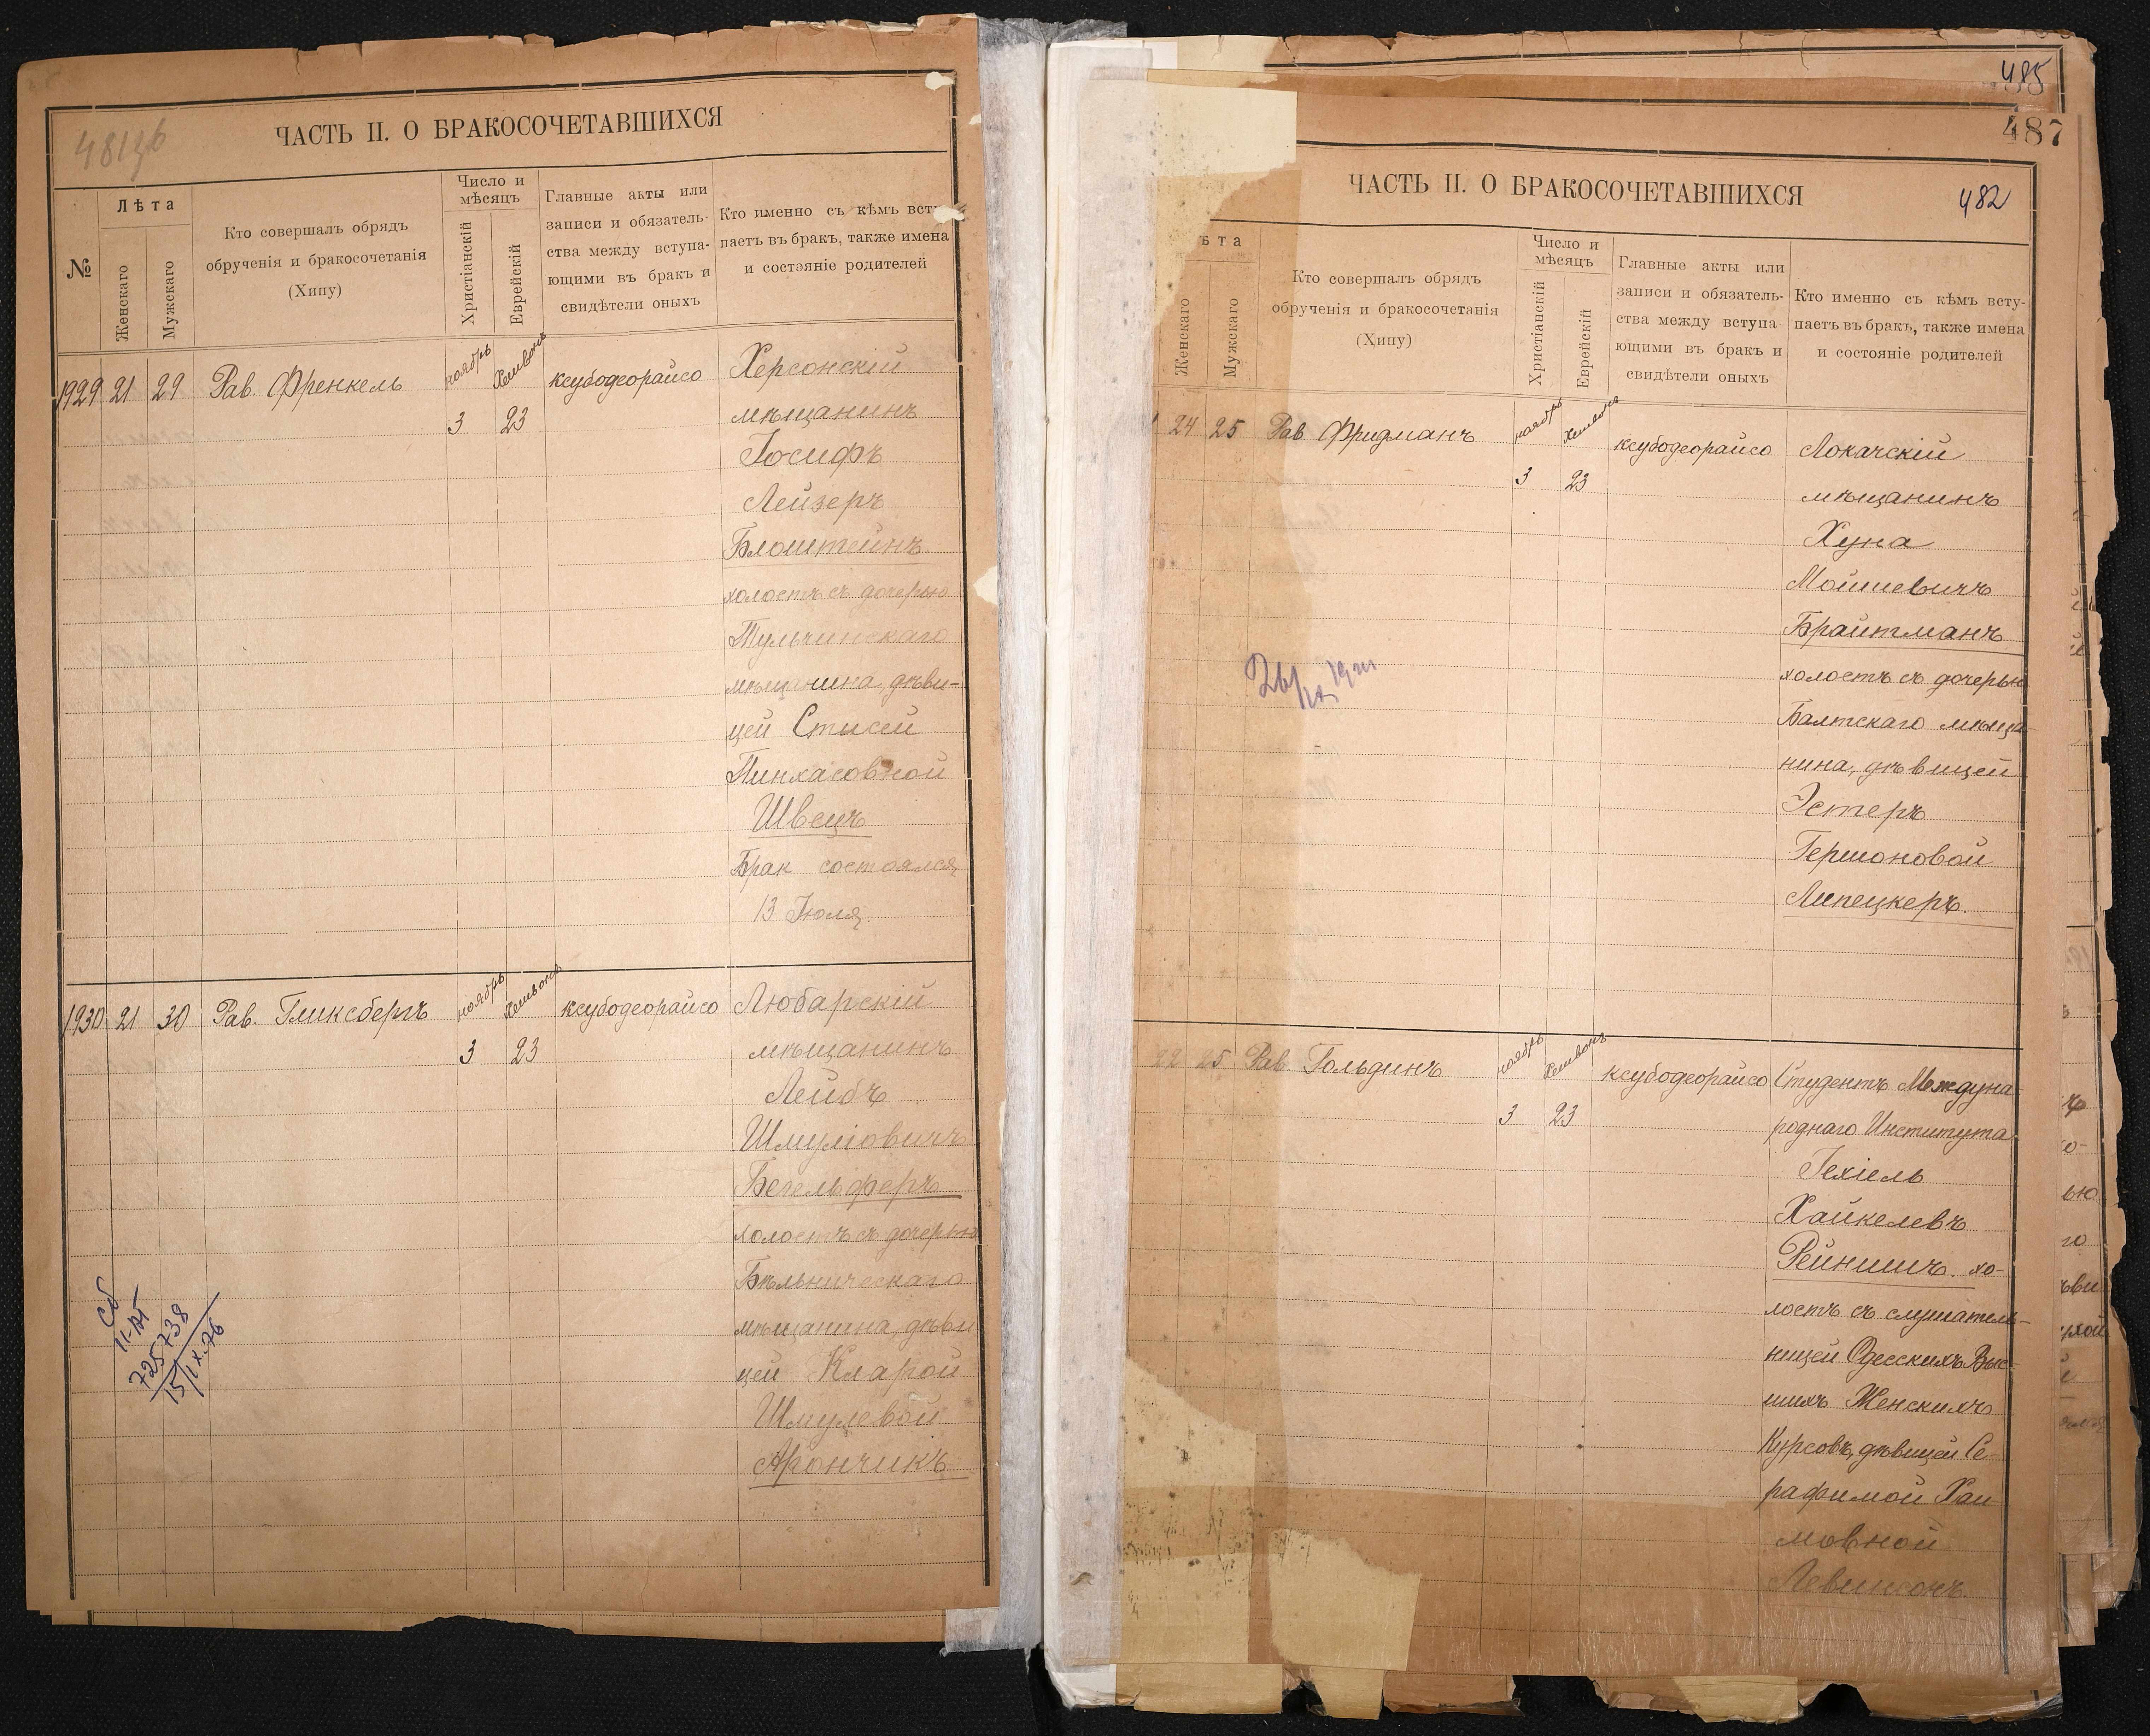 ЧАСТЬ II. О БРАКОСОЧЕТАВШИХСЯ
№
Лѣта
Женскаго
Мужскаго
Кто совершалъ обрядъ
обрученія и бракосочетанія
(Хипу)
Число и
мѣсяцъ
Христіанскій
Еврейскій
Главные акты или
записи и обязатель-
ства между вступа-
ющими въ бракъ и
свидѣтели оныхъ
Кто именно съ кѣмъ всту
паетъ въ бракъ, также имена
и состояніе родителей
1929 21 29 Рав. Френкель ноябрь Хешвонъ ксубодеорайсо Херсонскій
3 23 мѣщанинъ
Іосифъ
Лейзеръ
Блоштейнъ
холостъ съ дочерью
Тульчинскаго
мѣщанина, дѣви-
цей Стысей
Пинхасовной
Швецъ
Брак состоялся
13 Іюля.
1930 21 30 Рав. Гликсбергъ ноябрь Хешвонъ ксубодеорайсо Любарскій
3 23 мѣщанинъ
Лейбъ
Шмуліовичъ
Бегельферъ
холостъ съ дочерью
Бѣльническаго
мѣщанина, дѣви
цей Кларой
Шмулевой
Арончикъ
11-АГ
725738
15/IX.76
485
487
ЧАСТЬ II. О БРАКОСОЧЕТАВШИХСЯ
482
ѣта
Женскаго
Мужскаго
Кто совершалъ обрядъ
обрученія и бракосочетанія
(Хипу)
Число и
мѣсяцъ
Христіанскій
Еврейскій
Главные акты или
записи и обязатель-
ства между вступа
ющими въ бракъ и
свидѣтели оныхъ
Кто именно съ кѣмъ всту-
паетъ въ бракъ, также имена
и состояніе родителей
24 25 Рав. Фридманъ ноябрь Хешвонъ ксубодеорайсо Локачскій
3 23 мѣщанинъ
Хуна
Мошиевичъ
Брайтманъ
холостъ съ дочерью
Балтскаго мѣща-
нина, дѣвицей
Эстеръ
Гершоновой
Липецкеръ.
22 25 Рав. Гольдинъ ноябрь Хешвонъ ксубодеорайсо Студентъ Междуна-
3 23 роднаго Института
Іехіель
Хайкелевъ
Рейнишъ. хо-
лостъ съ слушатель-
ницей Одесскихъ Выс-
шихъ Женскихъ
Курсовъ, дѣвицей Се-
рафимой Хаи
мовной
Левинсонъ.